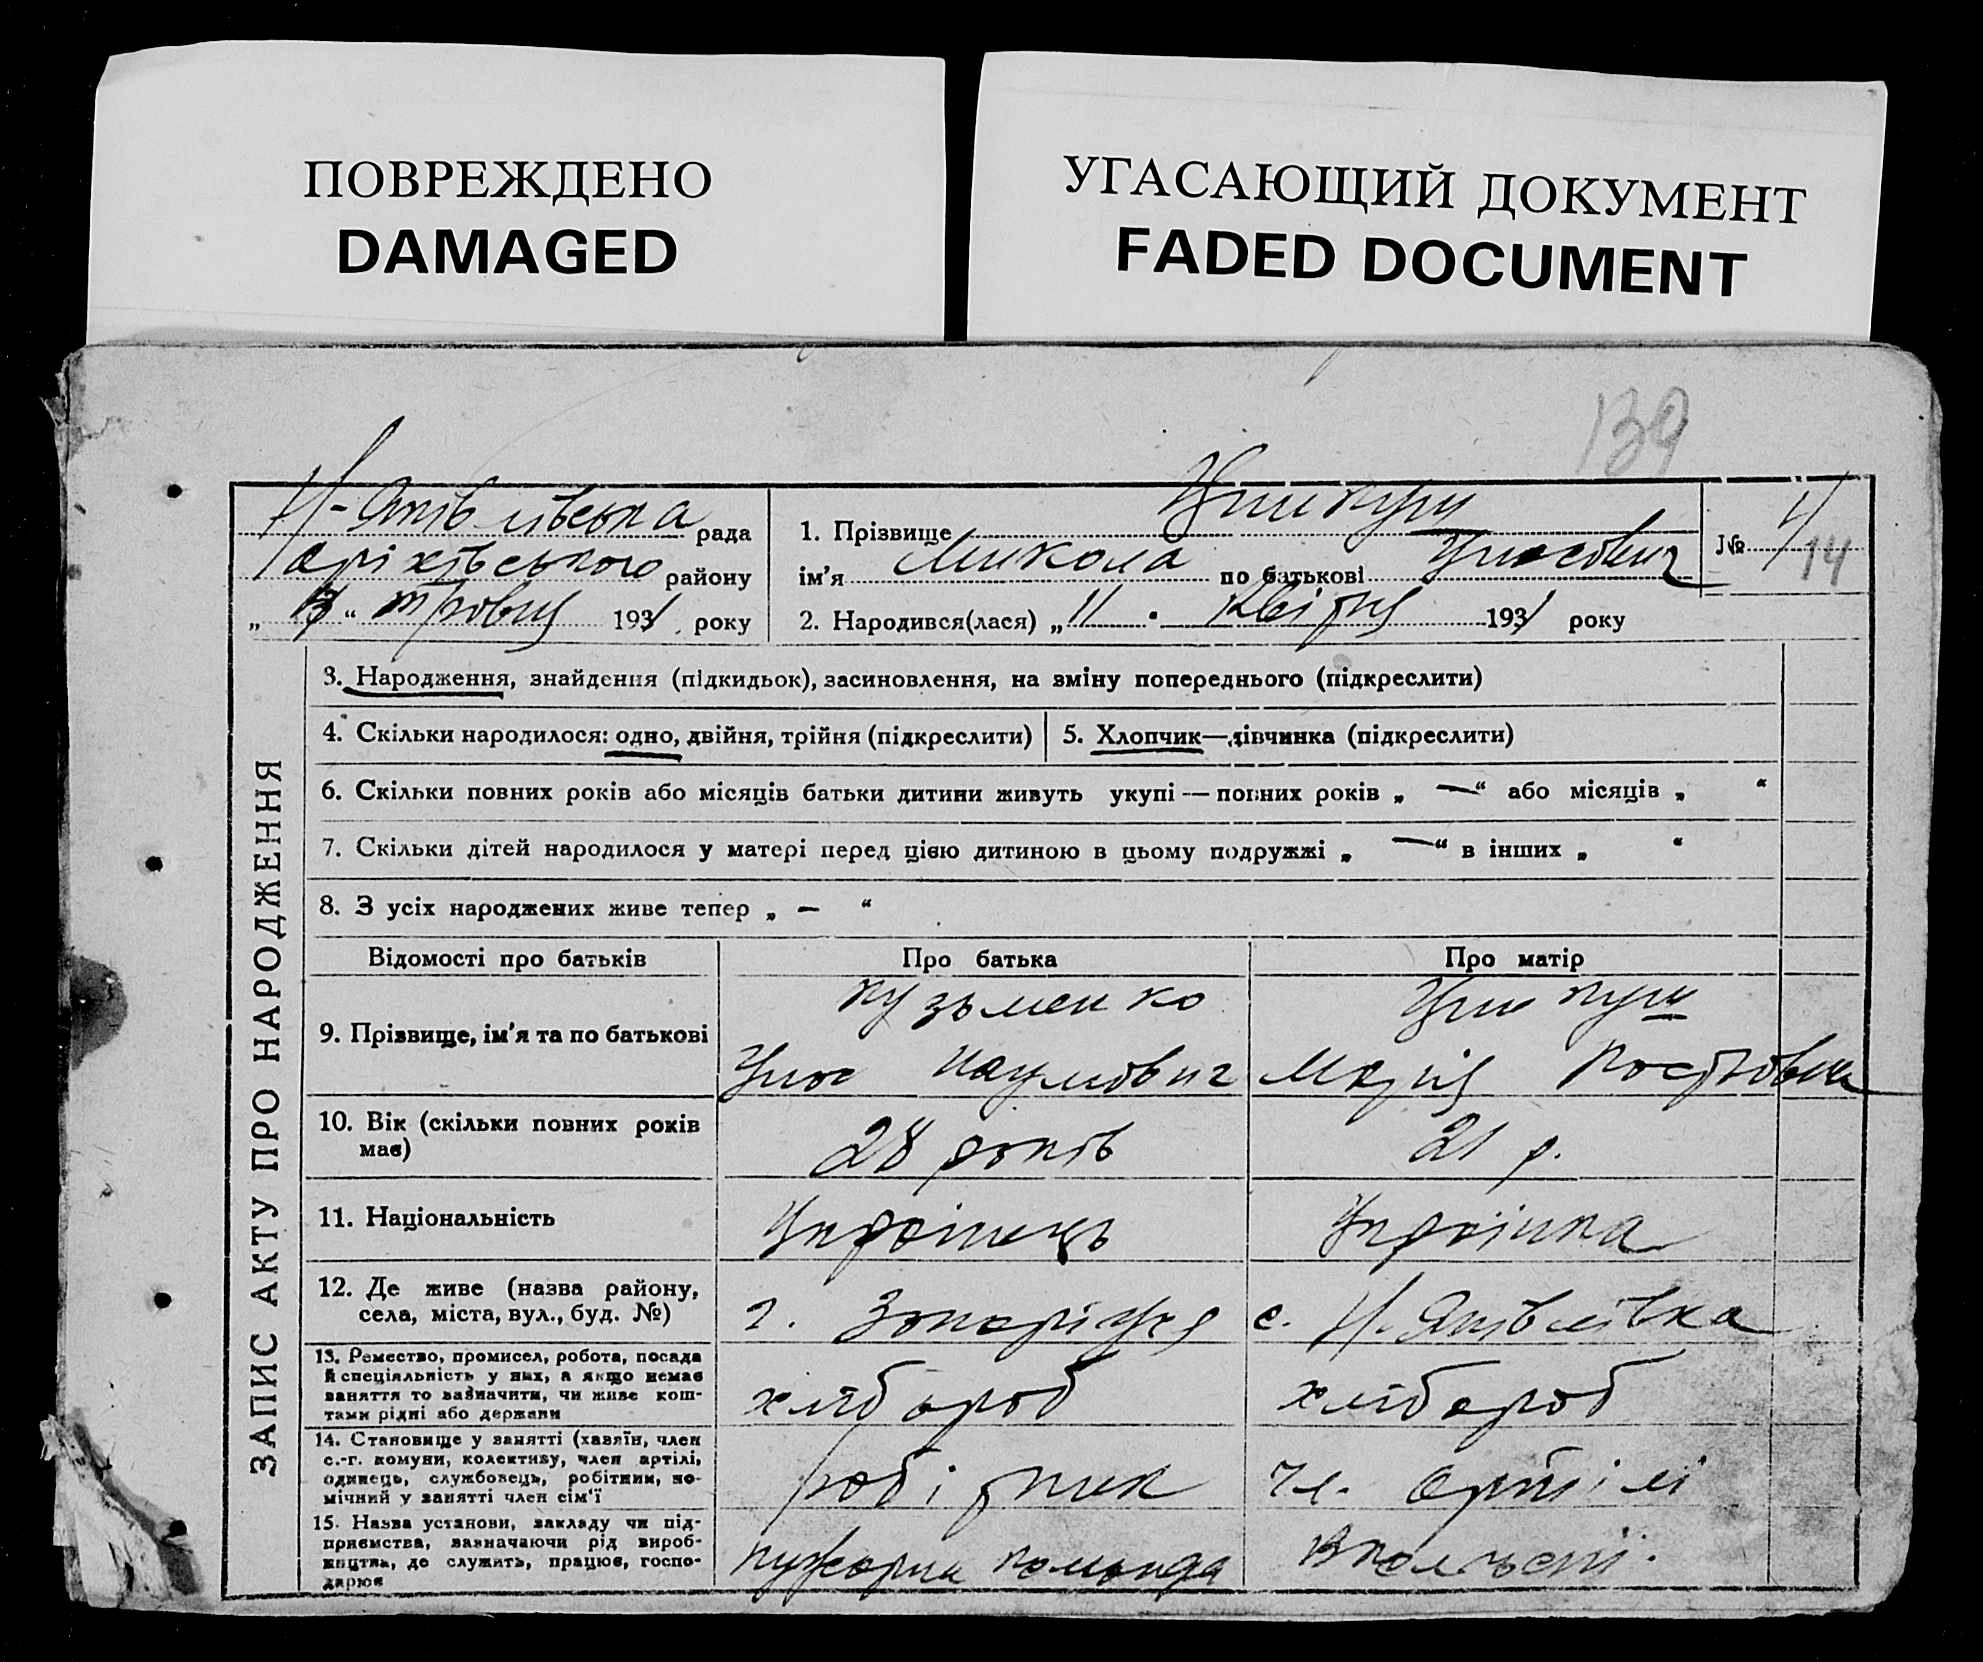 ПОВРЕЖДЕНО
DAMAGED
УГАСАЮЩИЙ ДОКУМЕНТ
FADED DOCUMENT
139
Н-Яківлівська рада
Оріхівського району
„ 13 “ травня 1931 року
1. Прізвище
ім'я Микола по батькові
2. Народився(лася) „ 11 . квітня 1931 року
№ 14
ЗАПИС АКТУ ПРО НАРОДЖЕННЯ
3. Народження, знайдення (підкидьок), засиновлення, на зміну попереднього (підкреслити)
4. Скільки народилося: одно, двійня, трійня (підкреслити)
5. Хлопчик—дівчинка (підкреслити)
6. Скільки повних років або місяців батьки дитини живуть укупі — повних років „ — “ або місяців „ “
7. Скільки дітей народилося у матері перед цією дитиною в цьому подружжі „ — “ в інших „ “
8. З усіх народжених живе тепер „ — “
Відомості про батьків
Про батька
Про матір
9. Прізвище, ім'я та по батькові
Кузьменко
Наумович
Марія
10. Вік (скільки повних років має)
28 років
21 р.
11. Національність
Українець
Українка
12. Де живе (назва району,
села, міста, вул., буд. №)
г. Запоріжжя
с. Н. Яківлівка
13. Ремество, промисел, робота, посада
й спеціяльність у них, а якщо немає
заняття то зазначити, чи живе кош-
тами рідні або держави
хлібороб
хлібороб
14. Становище у занятті (хазяїн, член
с.-г. комуни, колективу, член артілі,
одинець, службовець, робітник, по-
мічний у занятті член сім'ї
робітник
чл. артілі
15. Назва установи, закладу чи під-
приємства, зазначаючи рід вироб-
ництва, де служить, працює, госпо-
дарює
команда